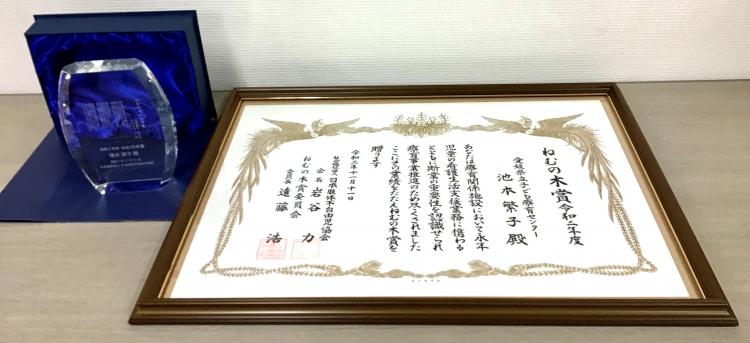 ねむの木賞 令和二年度
愛媛県立子ども療育センター
池本繁子殿
あなたは療育関係施設において永年
児童の看護生活支援業務に携わる
とともに斯業の重要性を認識せられ
療育事業推進のため尽くされました
ここにその業績をたたえねむの木賞を
贈ります
令和二年十一月十一日
日本肢体不自由児協会
会長 岩谷 力
ねむの木賞委員会
委員長 遠藤 浩